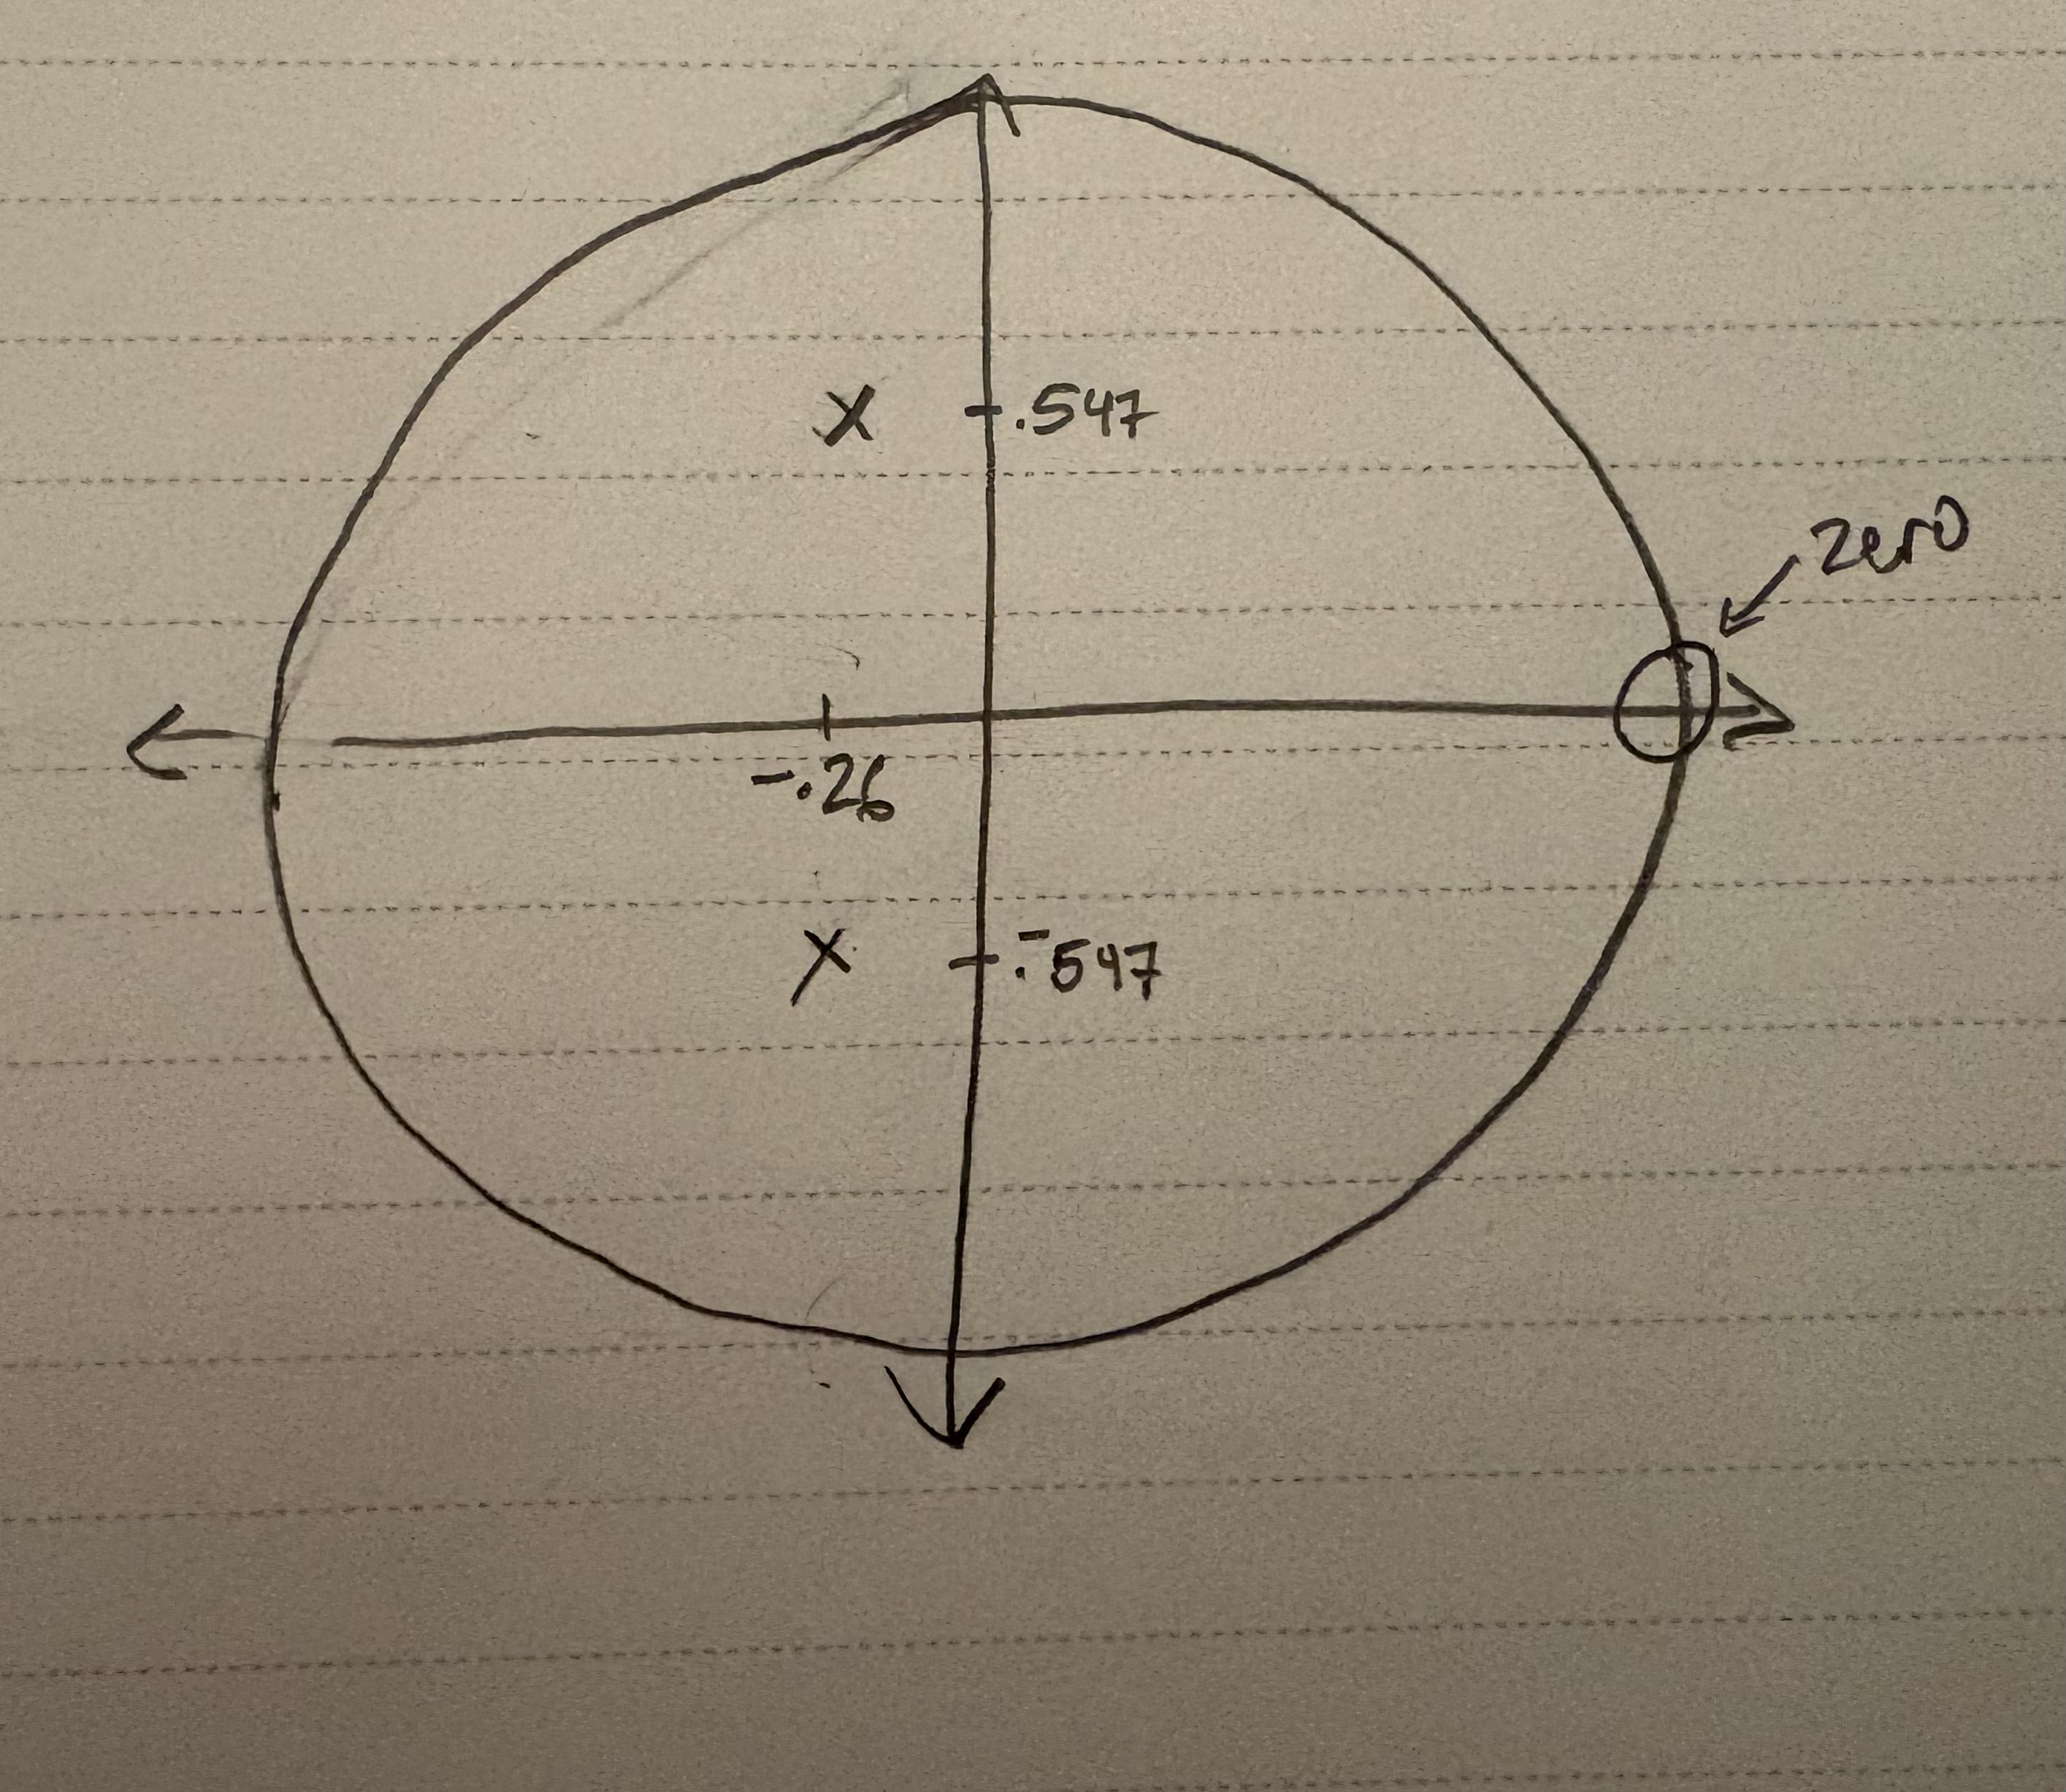 .547
zero
-.26
-.547